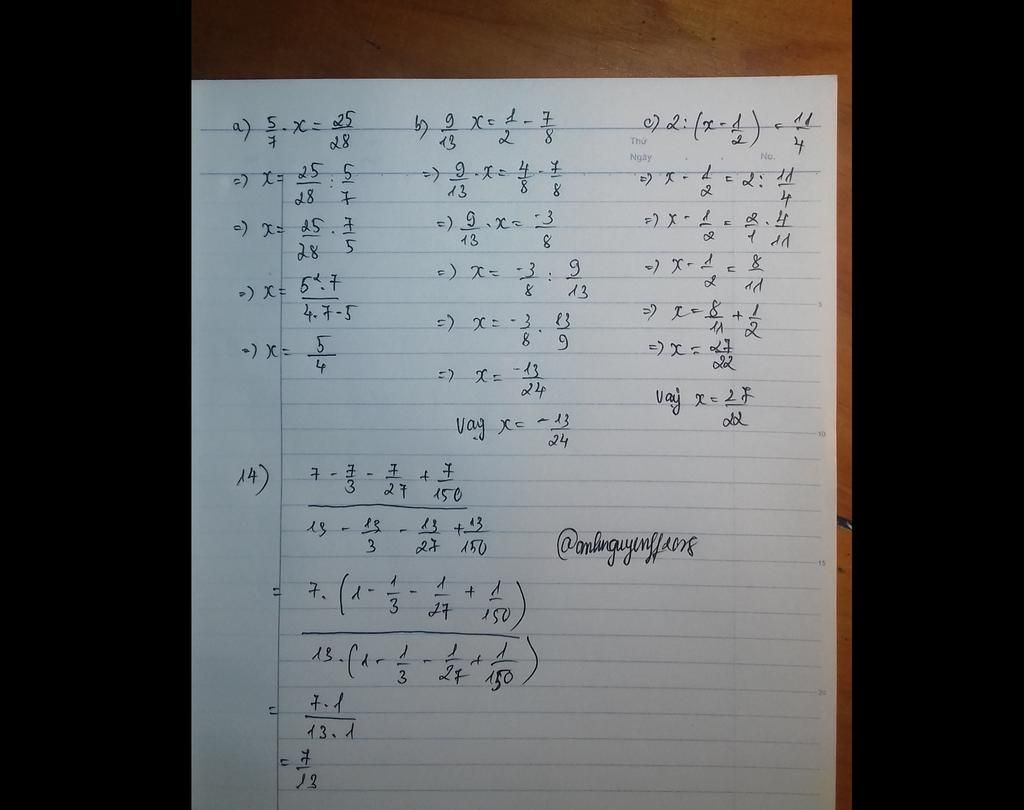 a) 5/7 . x = 25/28
=) x = 25/28 : 5/7
=) x = 25/28 . 7/5
=) x = 5² . 7 / 4 . 7 . 5
=) x = 5/4
b) 9/13 x = 1/2 - 7/8
=) 9/13 . x = 4/8 - 7/8
=) 9/13 . x = -3/8
=) x = -3/8 : 9/13
=) x = -3/8 . 13/9
=) x = -13/24
Vậy x = -13/24
c) 2 : (x - 1/2) = 11/4
Thứ
Ngày . . No.
=) x - 1/2 = 2 : 11/4
=) x - 1/2 = 2/1 . 4/11
=) x - 1/2 = 8/11
=) x = 8/11 + 1/2
=) x = 27/22
Vậy x = 27/22
5
10
15
20
14) 7 - 7/3 - 7/27 + 7/150
13 - 13/3 - 13/27 + 13/150
= 7 . (1 - 1/3 - 1/27 + 1/150)
13 . (1 - 1/3 - 1/27 + 1/150)
= 7 . 1 / 13 . 1
= 7/13